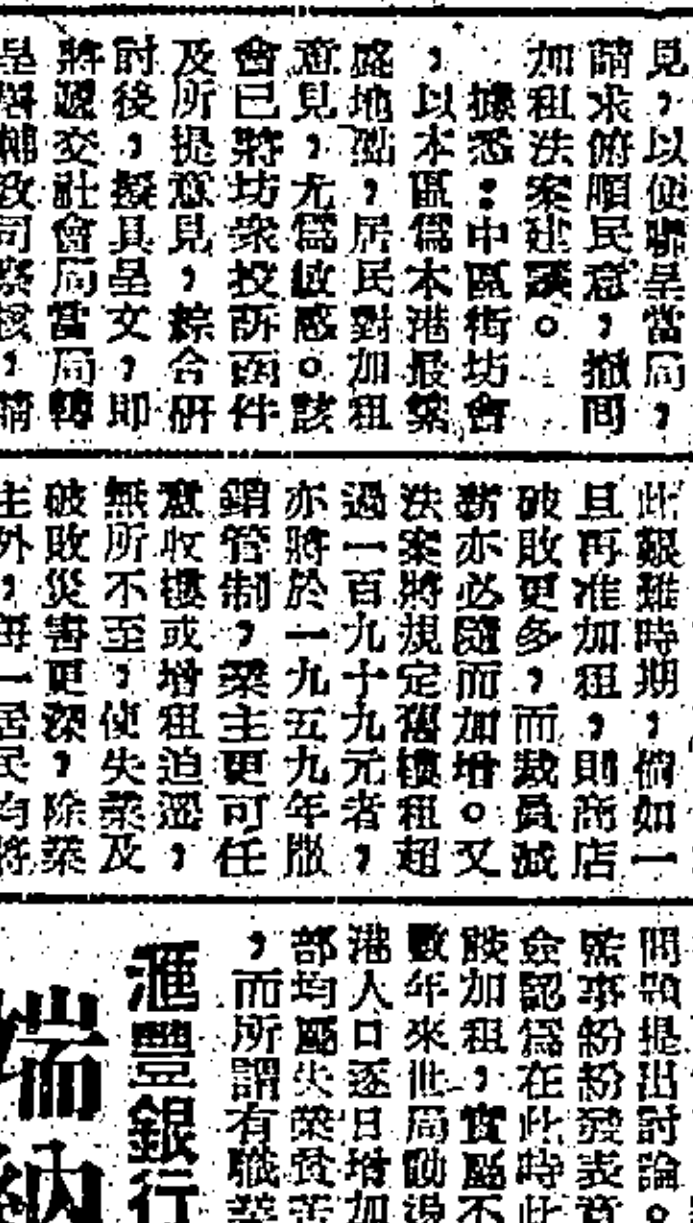 見，以便聯呈當局，
請求俯順民意，撤回
加租法案建議。
據悉：中區街坊會
，以本區爲本港最繁
盛地點，居民對加租
意見，尤爲敏感。該
會已將坊衆投訴函件
及所提意見，綜合研
討後，擬具呈文，即
將遞交社會局當局轉
呈輔政司察核，請
此艱難時期，倘如一
旦再准加租，則商店
破敗更多，而裁員減
薪亦必隨而加增。又
法案將規定舊樓租超
過一百九十九元者，
亦將於一九五九年撤
銷管制，業主更可任
意收樓或增租迫遷，
無所不至，使失業及
破敗災害更深，除業
主外，每一居民均將
問題提出討論。
監事紛紛發表意
僉認爲在此時此
議加租，實屬不
數年來世局動盪
港人口逐日增加
部均屬失業貧苦
，而所謂有職業
滙豐銀行
端納